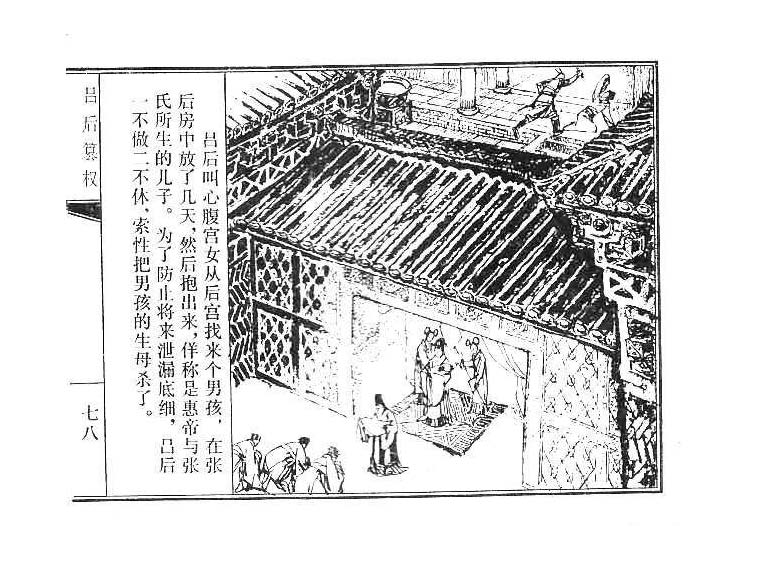 吕后叫心腹宫女从后宫找来个男孩，在张
后房中放了几天，然后抱出来，佯称是惠帝与张
氏所生的儿子。为了防止将来泄漏底细，吕后
一不做二不休，索性把男孩的生母杀了。
吕后篡权
七八